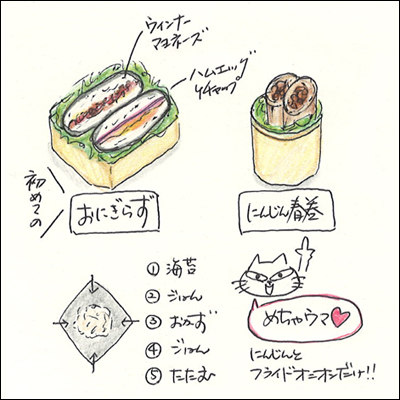 ウィンナー
マヨネーズ
ハムエッグ
ケチャップ
初めての
おにぎらず
にんじん春巻
① 海苔
② ごはん
③ おかず
④ ごはん
⑤ たたむ
めちゃウマ♥
にんじんと
フライドオニオンだけ!!